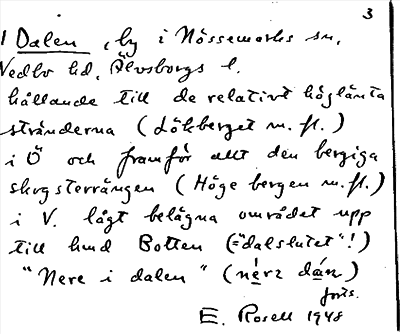 3
1 Dalen, by i Nössemarks sn,
Vedbo hd, Älvsborgs l.
hållande till de relativt höglänta
stränderna (Lökberget m. fl.)
i Ö och framför allt den bergiga
skogsterrängen (Höge bergen m. fl.)
i V. lågt belägna området upp
till hmd Botten (="dalslutet"!)
"Nere i dalen" (nérz dán)
forts.
E. Rosell 1948